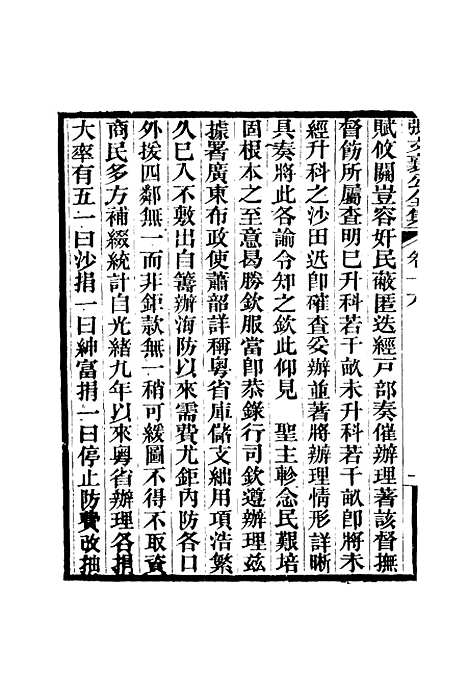 張文襄公全集 卷十八 一
賦攸關豈容奸民蔽匿迭經戸部奏催辦理著該督撫
督飭所屬查明已升科若干畝未升科若干畝卽將未
經升科之沙田迅卽確查妥辦並著將辦理情形詳晰
具奏將此各諭令知之欽此仰見 聖主軫念民艱培
固根本之至意曷勝欽服當卽恭錄行司欽遵辦理茲
據署廣東布政使蕭韶詳稱粵省庫儲支絀用項浩繁
久已入不敷出自籌辦海防以來需費尤鉅內防各口
外援四鄰無一而非鉅款無一稍可緩圖不得不取資
商民多方補綴統計自光緒九年以來粵省辦理各捐
大率有五一曰沙捐一曰紳富捐一曰停止防費改抽